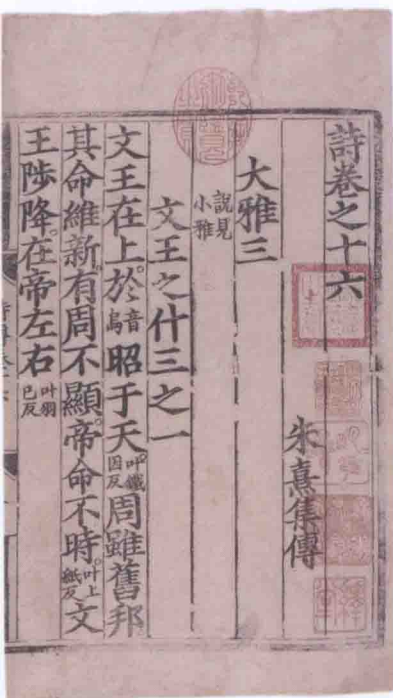 詩卷之十六
朱熹集傳
大雅三
說見小雅
文王之什三之一
文王在上於音烏昭于天叶鐵因反周雖舊邦
其命維新有周不顯帝命不時叶上紙反文
王陟降在帝左右叶羽已反